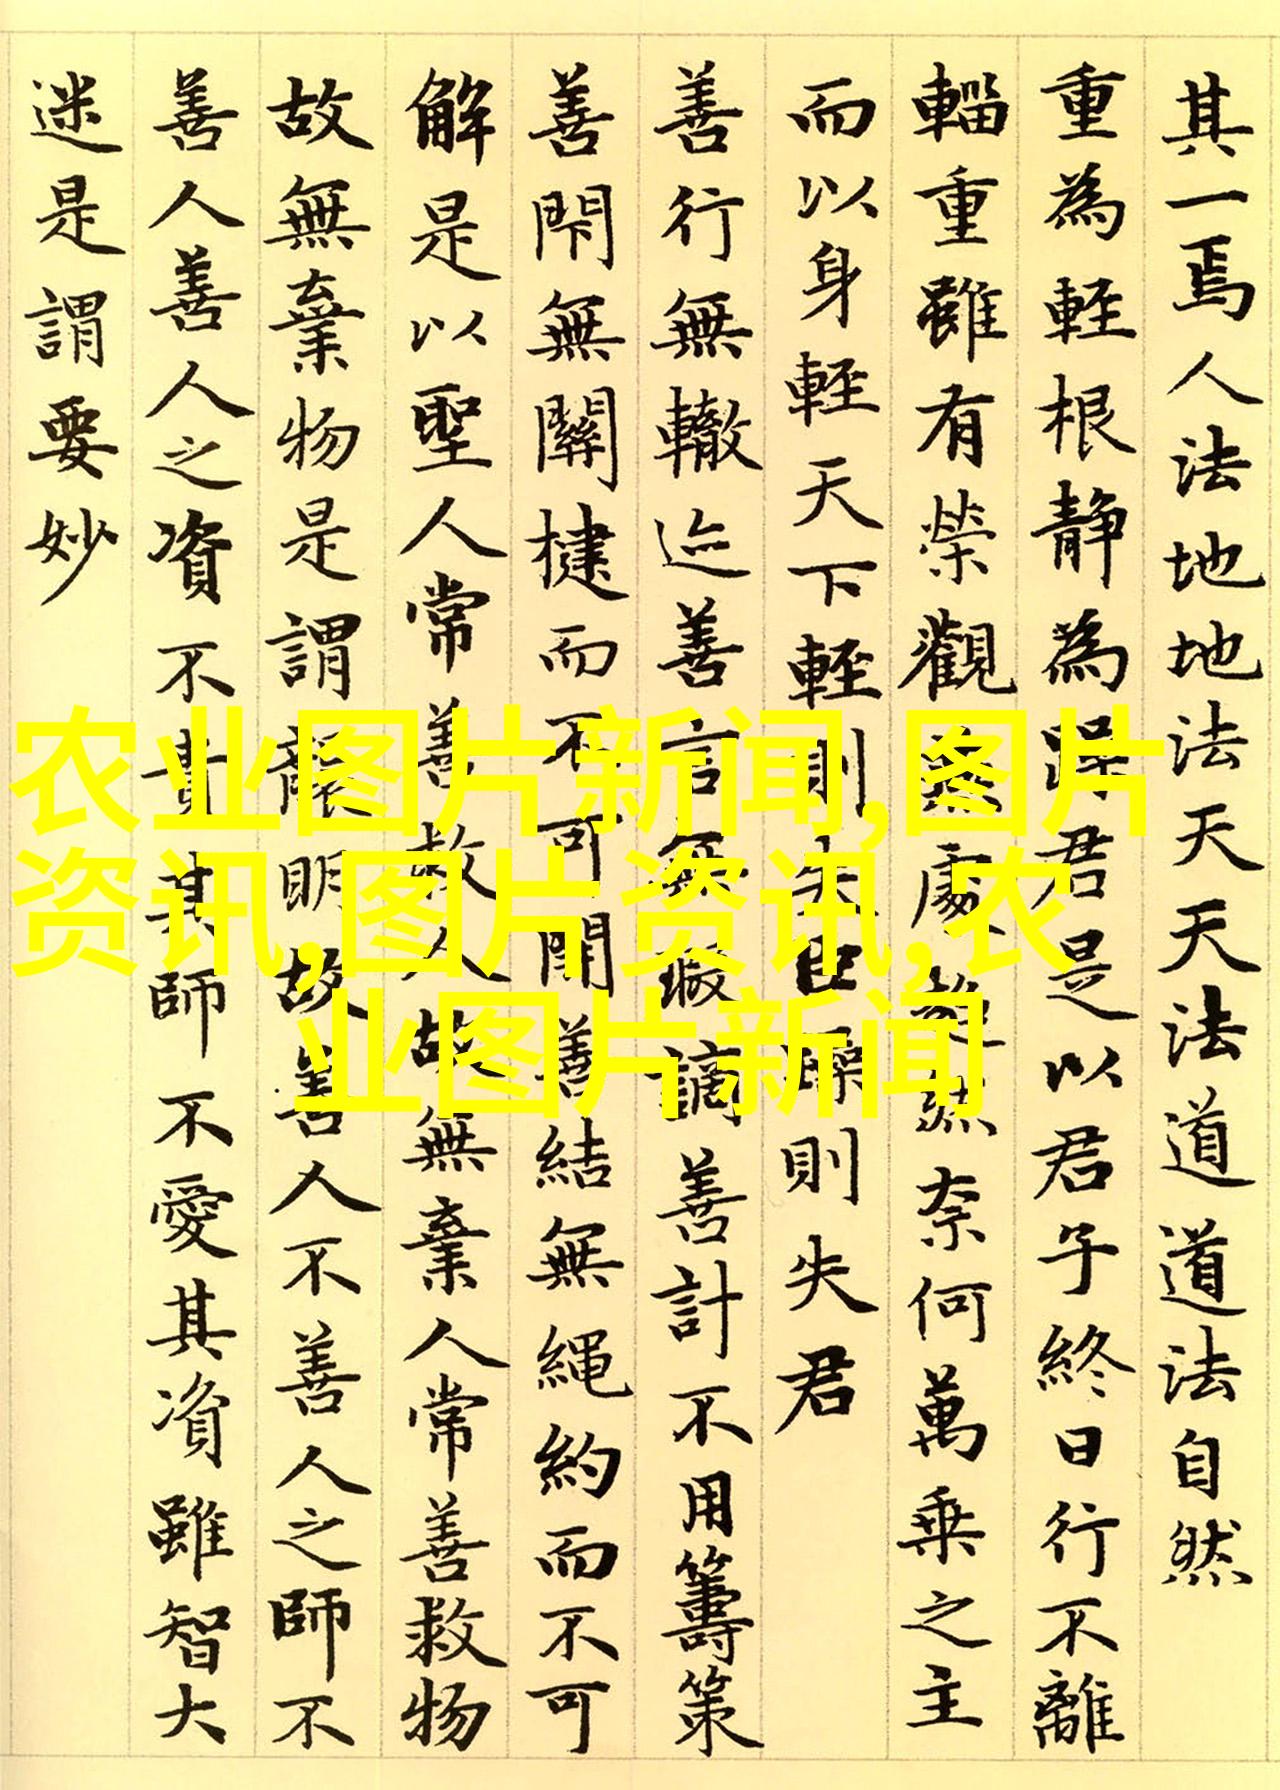 其一焉人法地地法天天法道道法自然
重為輕根静為躁君是以君子終日行不離
輜重雖有榮觀燕處超然奈何萬乘之主
而以身輕天下輕則失臣躁則失君
善行無轍迹善言無瑕謫善計不用籌策
善閇無關楗而不可開善結無繩約而不可
解是以聖人常善救人故無棄人常善救物
故無棄物是謂襲明故善人不善人之師不
善人善人之資不貴其師不愛其資雖智大
迷是謂要妙
农业图片新闻,图片
资讯,图片资讯,农
业图片新闻